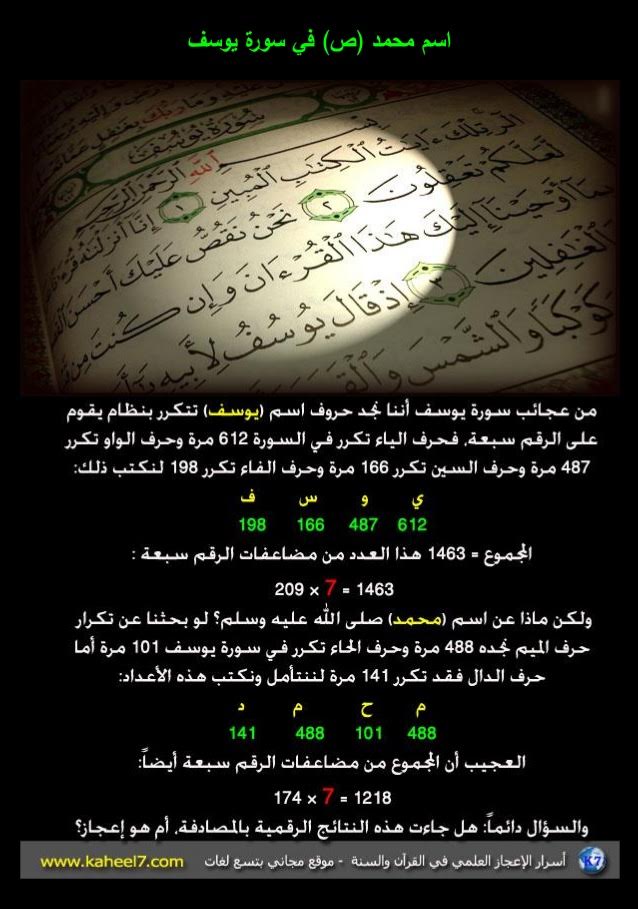 اسم محمد (ص) في سورة يوسف
سورة يوسف
بسم الله الرحمن الرحيم
الر تلك ءايت الكتب المبين ١ إنا أنزلنه
لعلكم تعقلون ٢ نحن نقص عليك أحسن
بما أوحينا إليك هذا القرءان وإن كنت من
الغفلين ٣ إذ قال يوسف لأبيه
كوكبا والشمس والقمر
من عجائب سورة يوسف أننا نجد حروف اسم (يوسف) تتكرر بنظام يقوم
على الرقم سبعة، فحرف الياء تكرر في السورة 612 مرة وحرف الواو تكرر
487 مرة وحرف السين تكرر 166 مرة وحرف الفاء تكرر 198 لنكتب ذلك:
ي و س ف
612 487 166 198
المجموع = 1463 هذا العدد من مضاعفات الرقم سبعة :
1463 = 7 × 209
ولكن ماذا عن اسم (محمد) صلى الله عليه وسلم؟ لو بحثنا عن تكرار
حرف الميم نجده 488 مرة وحرف الحاء تكرر في سورة يوسف 101 مرة أما
حرف الدال فقد تكرر 141 مرة لنتأمل ونكتب هذه الأعداد:
م ح م د
488 101 488 141
العجيب أن المجموع من مضاعفات الرقم سبعة أيضاً:
1218 = 7 × 174
والسؤال دائماً: هل جاءت هذه النتائج الرقمية بالمصادفة، أم هو إعجاز؟
K7 أسرار الإعجاز العلمي في القرآن والسنة - موقع مجاني بتسع لغات www.kaheel7.com